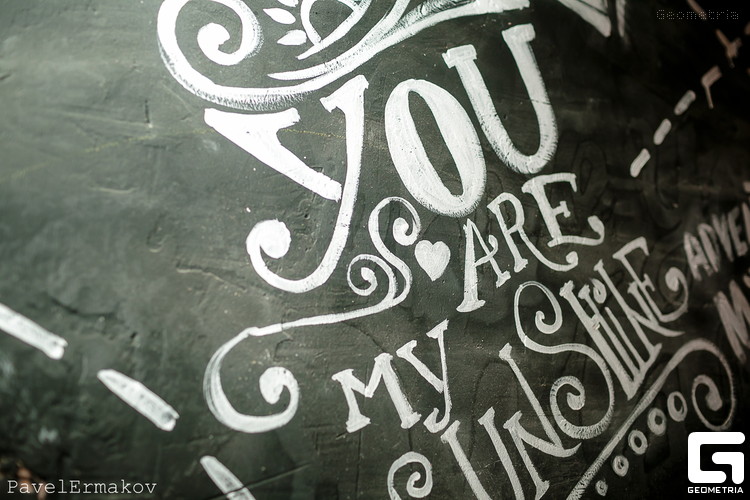 Geometria
YOU
ARE
MY
SUNSHINE
PavelErmakov
GEOMETRIA